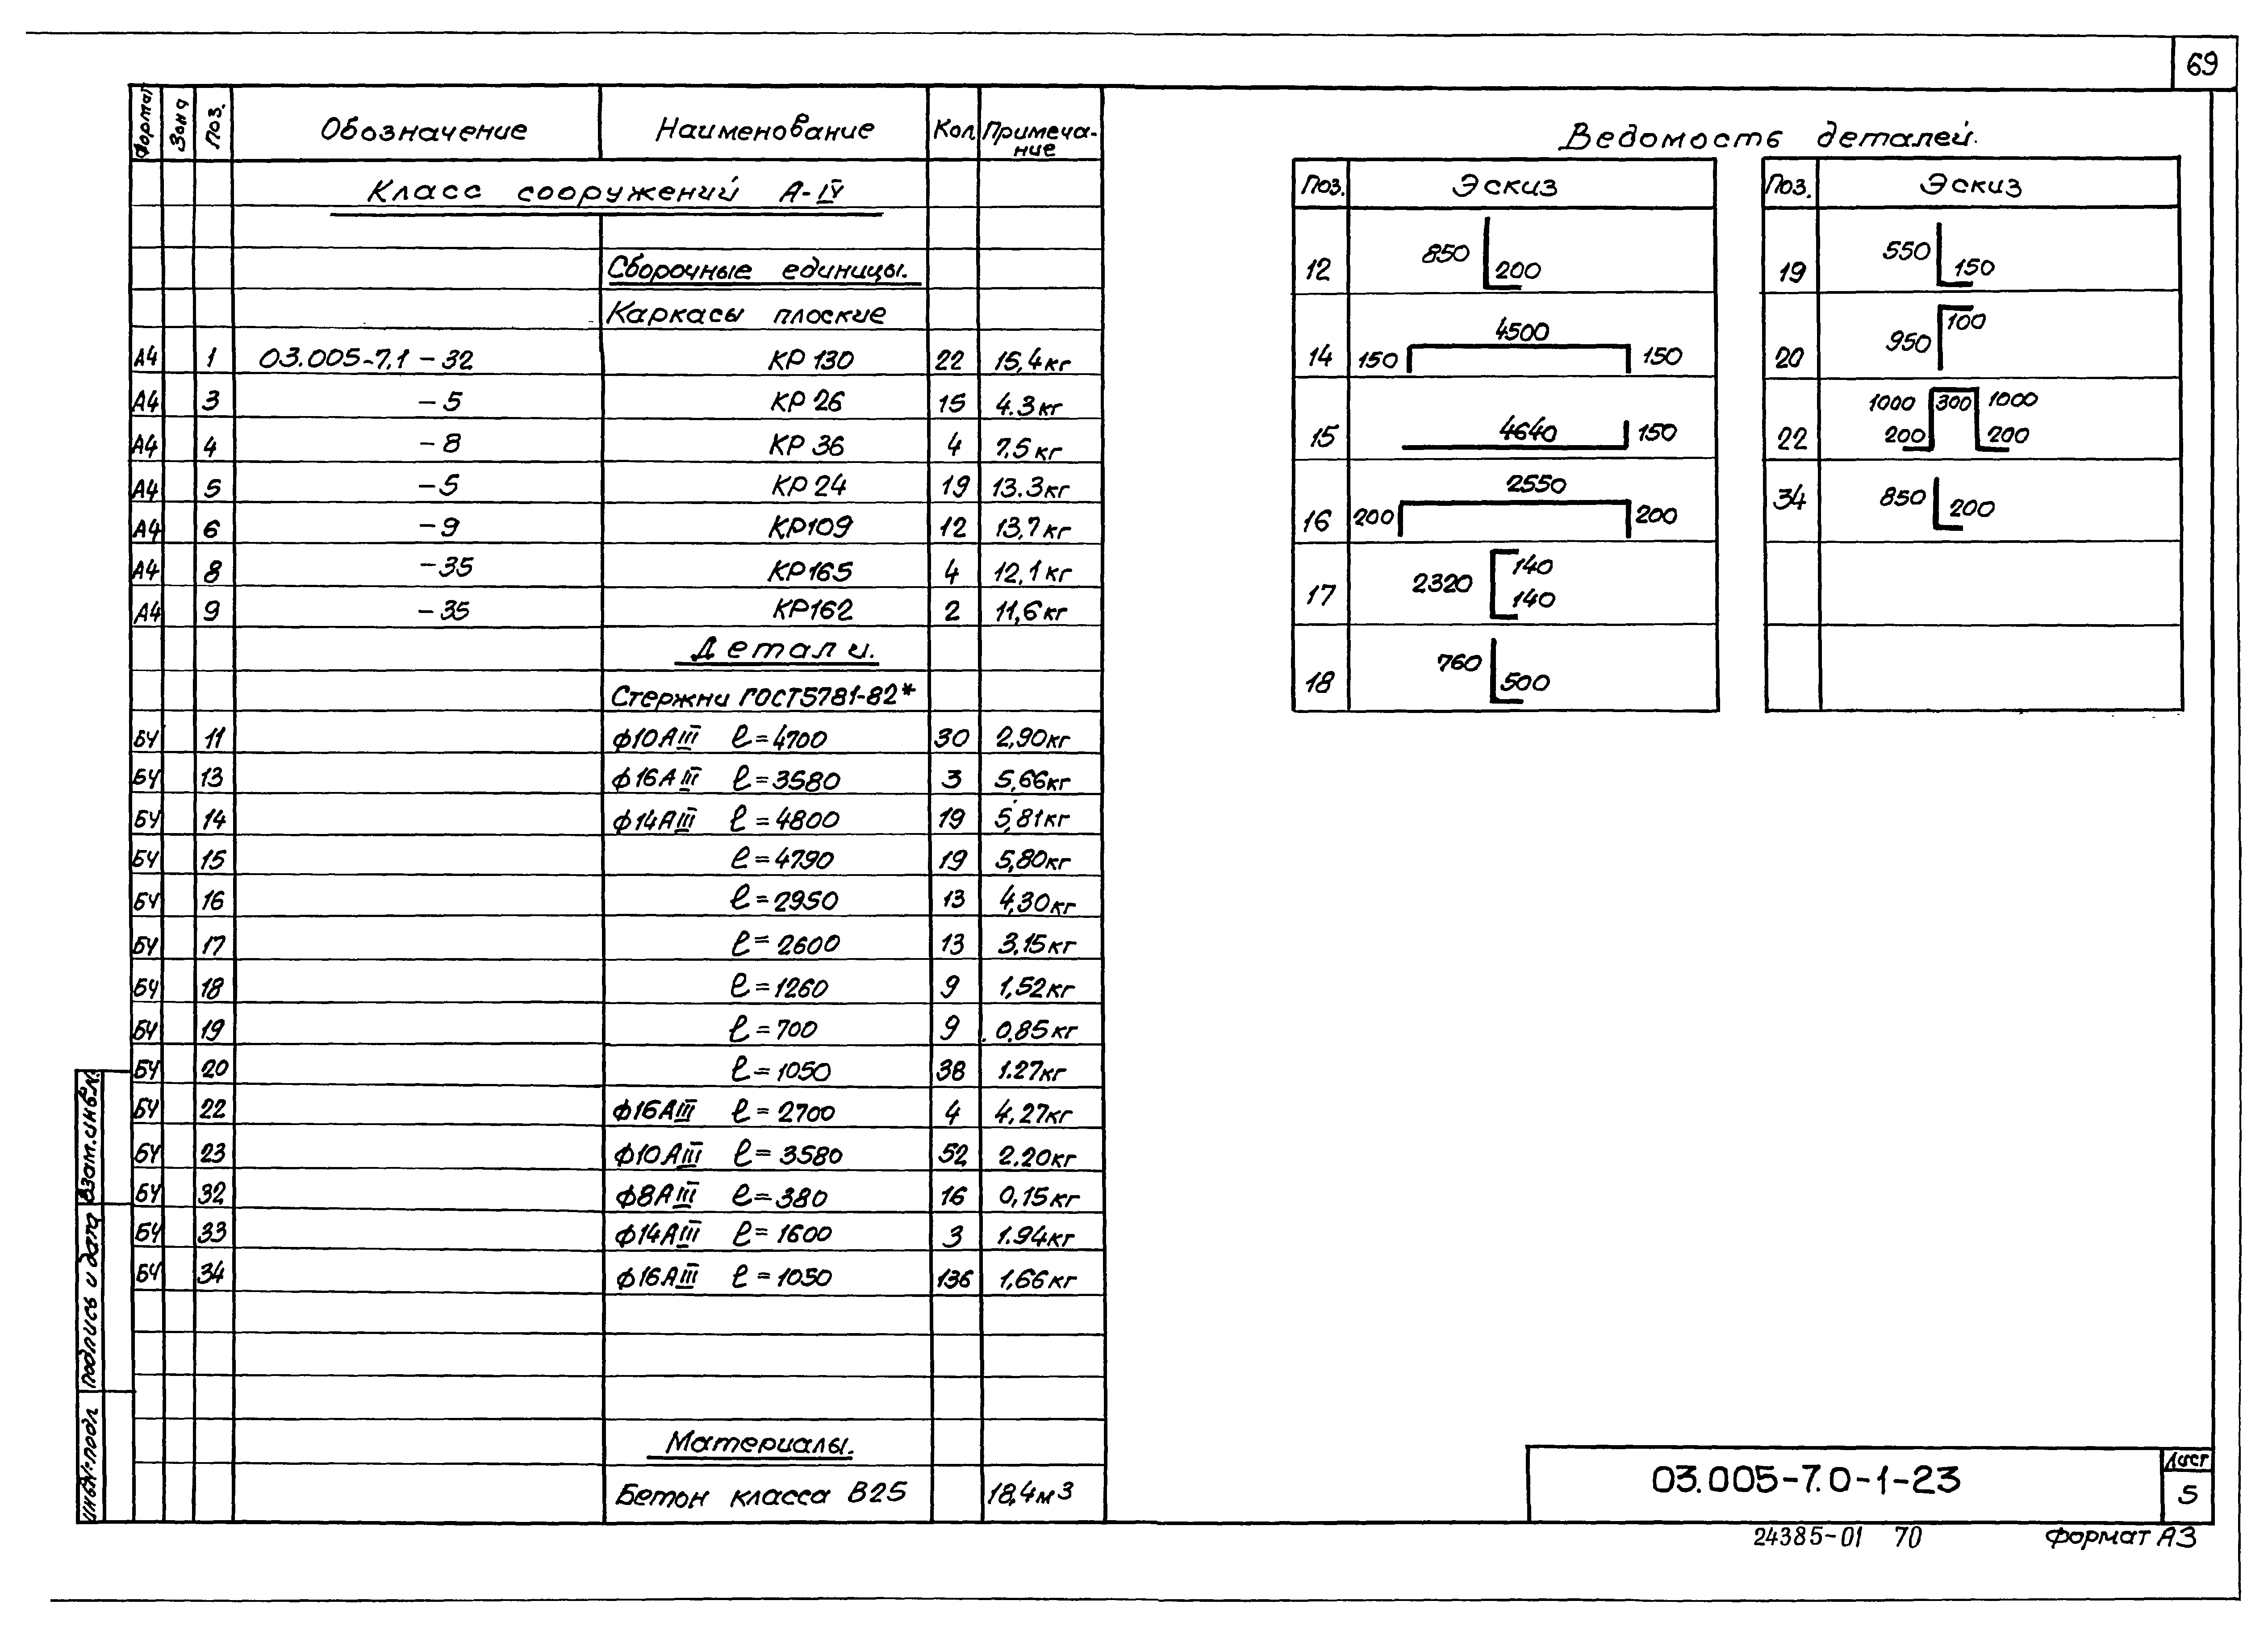 69
Формат Зона Поз. Обозначение Наименование Кол. Примеча-ние
Класс сооружений А-IV
Сборочные единицы.
Каркасы плоские
А4 1 03.005-7.1-32 КР130 22 15,4кг
А4 3 -5 КР26 15 4.3кг
А4 4 -8 КР36 4 7.5кг
А4 5 -5 КР24 19 13.3кг
А4 6 -9 КР109 12 13,7кг
А4 8 -35 КР165 4 12,1кг
А4 9 -35 КР162 2 11,6кг
Детали.
Стержни ГОСТ5781-82*
БЧ 11 ф10АIII ℓ=4700 30 2,90кг
БЧ 13 ф16АIII ℓ=3580 3 5,66кг
БЧ 14 ф14АIII ℓ=4800 19 5,81кг
БЧ 15 ℓ=4790 19 5,80кг
БЧ 16 ℓ=2950 13 4,30кг
БЧ 17 ℓ=2600 13 3,15кг
БЧ 18 ℓ=1260 9 1,52кг
БЧ 19 ℓ=700 9 0,85кг
БЧ 20 ℓ=1050 38 1.27кг
БЧ 22 ф16АIII ℓ=2700 4 4,27кг
БЧ 23 ф10АIII ℓ=3580 52 2.20кг
БЧ 32 ф8АIII ℓ=380 16 0,15кг
БЧ 33 ф14АIII ℓ=1600 3 1.94кг
БЧ 34 ф16АIII ℓ=1050 136 1,66кг
Материалы.
Бетон класса В25 18,4м3
Ведомость деталей.
Поз. Эскиз
12 850 200
14 150 4500 150
15 4640 150
16 200 2550 200
17 2320 140 140
18 760 500
Поз. Эскиз
19 550 150
20 950 100
22 1000 300 1000 200 200
34 850 200
Взам.инв.N
Подпись и дата
Инв.N°подл
03.005-7.0-1-23
Лист
5
24385-01 70
Формат А3